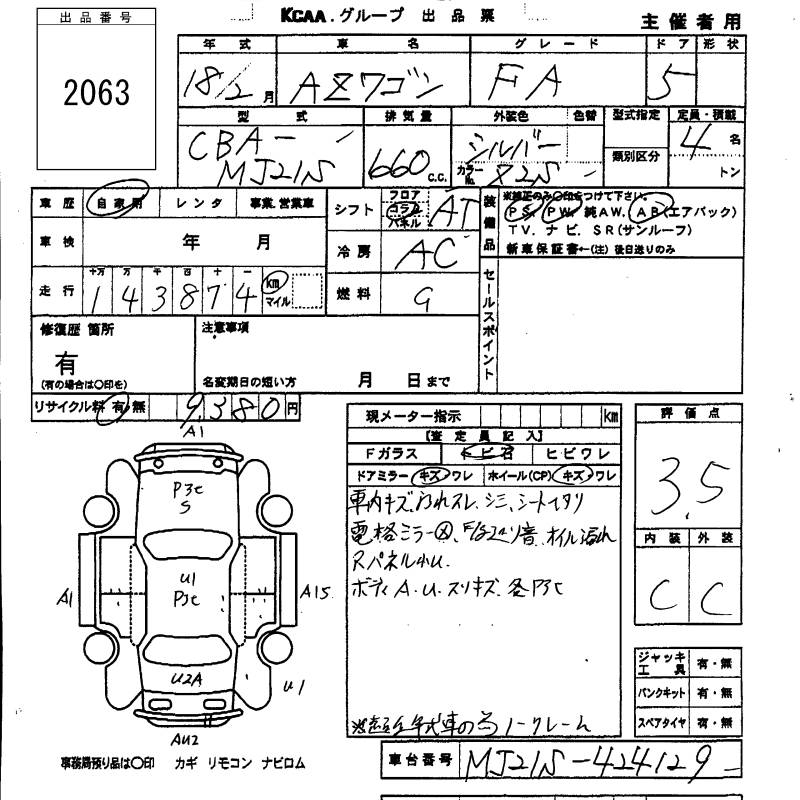 出品番号
2063
KCAA.グループ 出品票
主催者用
年式 車名 グレード ドア 形状
18/2月 AZワゴン FA 5
型式 排気量 外装色 色替 型式指定 定員・積載
CBA-
MJ21S 660 C.C. シルバー カラーNo. Z2S 類別区分 4名
トン
車歴 自家用 レンタ 事業.営業車
シフト フロア コラム パネル AT
装備品
※純正のみ○印をつけて下さい。
PS. PW. 純AW. AB(エアバック)
TV. ナビ. SR(サンルーフ)
新車保証書←(注)後日送りのみ
車検 年 月
冷房 AC
走行 十万 万 千 百 十 一
143874 km マイル
燃料 G
セールスポイント
修復歴 箇所
有
(有の場合は○印を)
注意事項
名変期日の短い方 月 日まで
リサイクル料 有・無 9,380円
現メーター指示 km
【査定員記入】
Fガラス トビ石 ヒビワレ
ドアミラー キズ・ワレ ホイール(CP) キズ・ワレ
車内キズ、スレ、シミ、シート
電格ミラー、音、オイル
Rパネル小U.
ボディA.U.スリキズ、各P3t
年式車の為ノークレーム
評価点
3.5
内装 外装
C C
ジャッキ工具 有・無
パンクキット 有・無
スペアタイヤ 有・無
A1
P3t
S
U1
P3t
A1
A1S
U2A
U1
AU2
事務局預り品は○印 カギ リモコン ナビロム
車台番号 MJ21S-424129